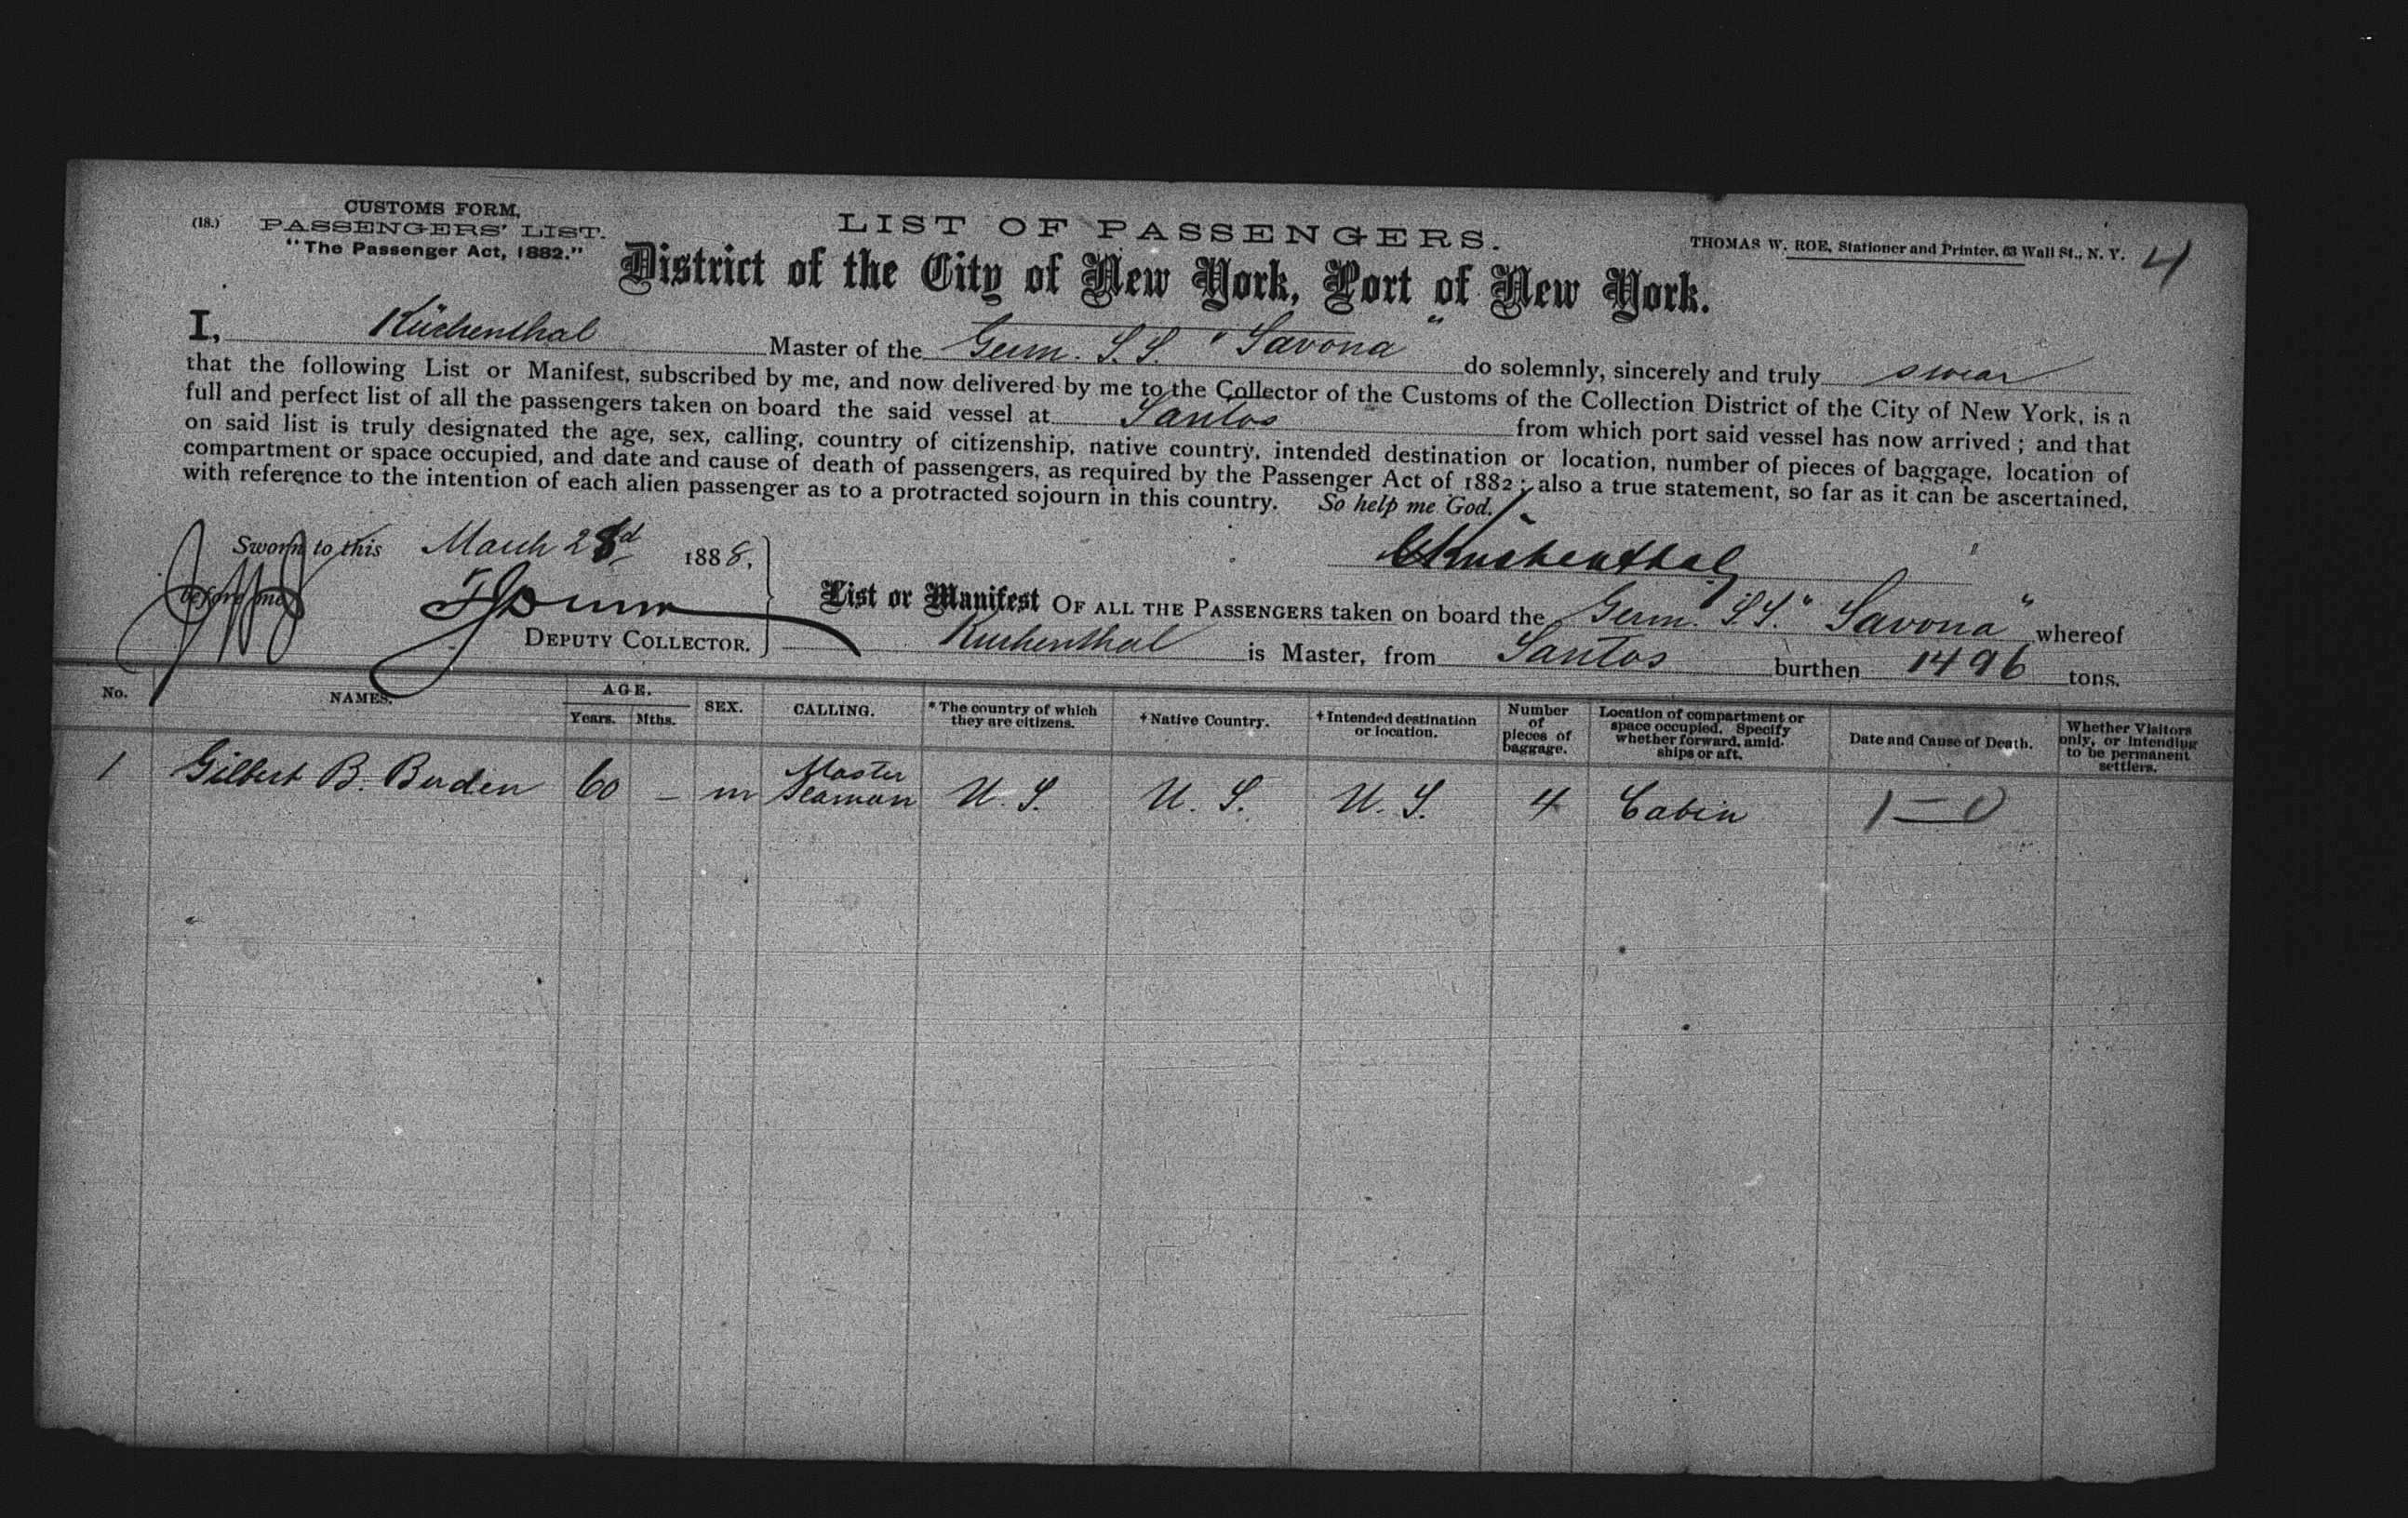 (18.)
CUSTOMS FORM,
PASSENGERS' LIST.
"The Passenger Act, 1882."
LIST OF PASSENGERS.
THOMAS W. ROE, Stationer and Printer, 63 Wall St., N. Y.
4
District of the City of New York, Port of New York.
I, Küchenthal Master of the Germ. S.S. "Savona" do solemnly, sincerely and truly swear
that the following List or Manifest, subscribed by me, and now delivered by me to the Collector of the Customs of the Collection District of the City of New York, is a
full and perfect list of all the passengers taken on board the said vessel at Santos from which port said vessel has now arrived; and that
on said list is truly designated the age, sex, calling, country of citizenship, native country, intended destination or location, number of pieces of baggage, location of
compartment or space occupied, and date and cause of death of passengers, as required by the Passenger Act of 1882; also a true statement, so far as it can be ascertained,
with reference to the intention of each alien passenger as to a protracted sojourn in this country. So help me God.
Sworn to this March 1888.
Küchenthal
before me
DEPUTY COLLECTOR.
List or Manifest OF ALL THE PASSENGERS taken on board the Germ. S.S. "Savona" whereof
Kuchenthal is Master, from Santos burthen 1496 tons.
No. NAMES. AGE. Years. Mths. SEX. CALLING. *The country of which they are citizens. †Native Country. †Intended destination or location. Number of pieces of baggage. Location of compartment or space occupied. Specify whether forward, amidships or aft. Date and Cause of Death. Whether Visitors only, or intending to be permanent settlers.
1 Gilbert B. Borden 60 — m Master Seaman U. S. U. S. U. S. 4 Cabin 1—0